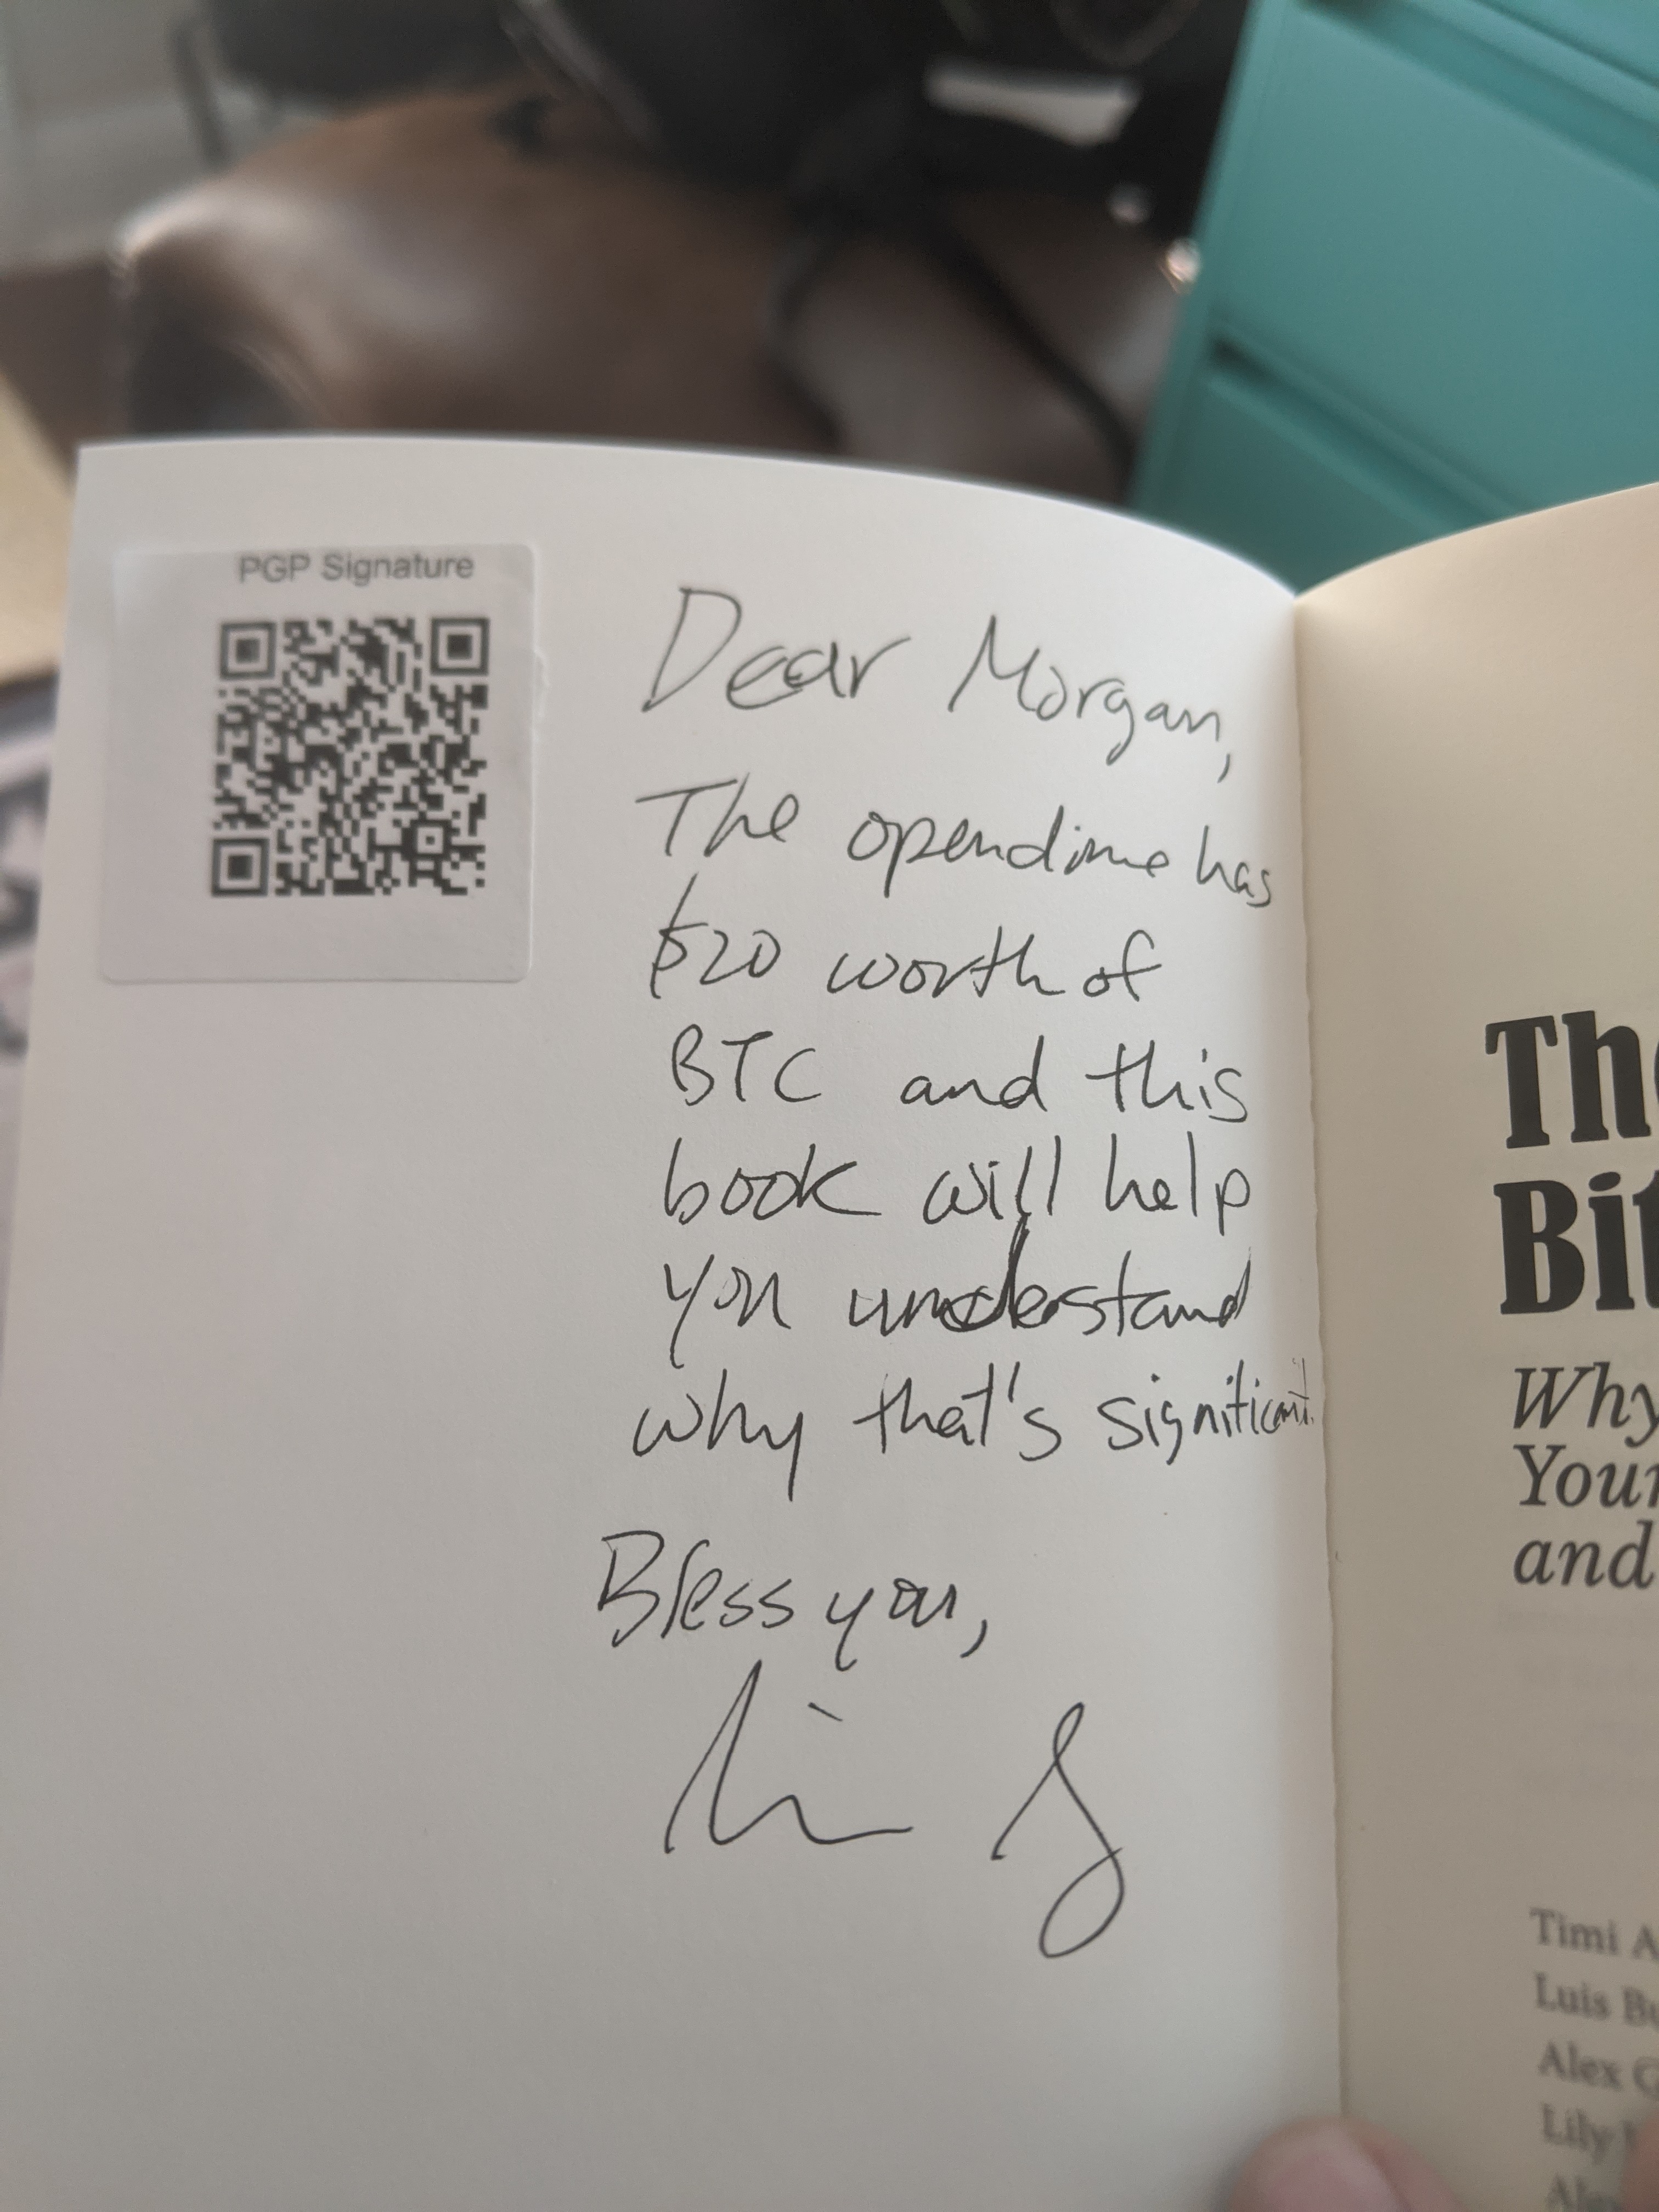 PGP Signature
Dear Morgan,
The opendime has
$20 worth of
BTC and this
book will help
you understand
why that's significant.
Bless you,
Th
Bit
Why
Your
and
Timi A
Luis B
Alex G
Lily
Alex